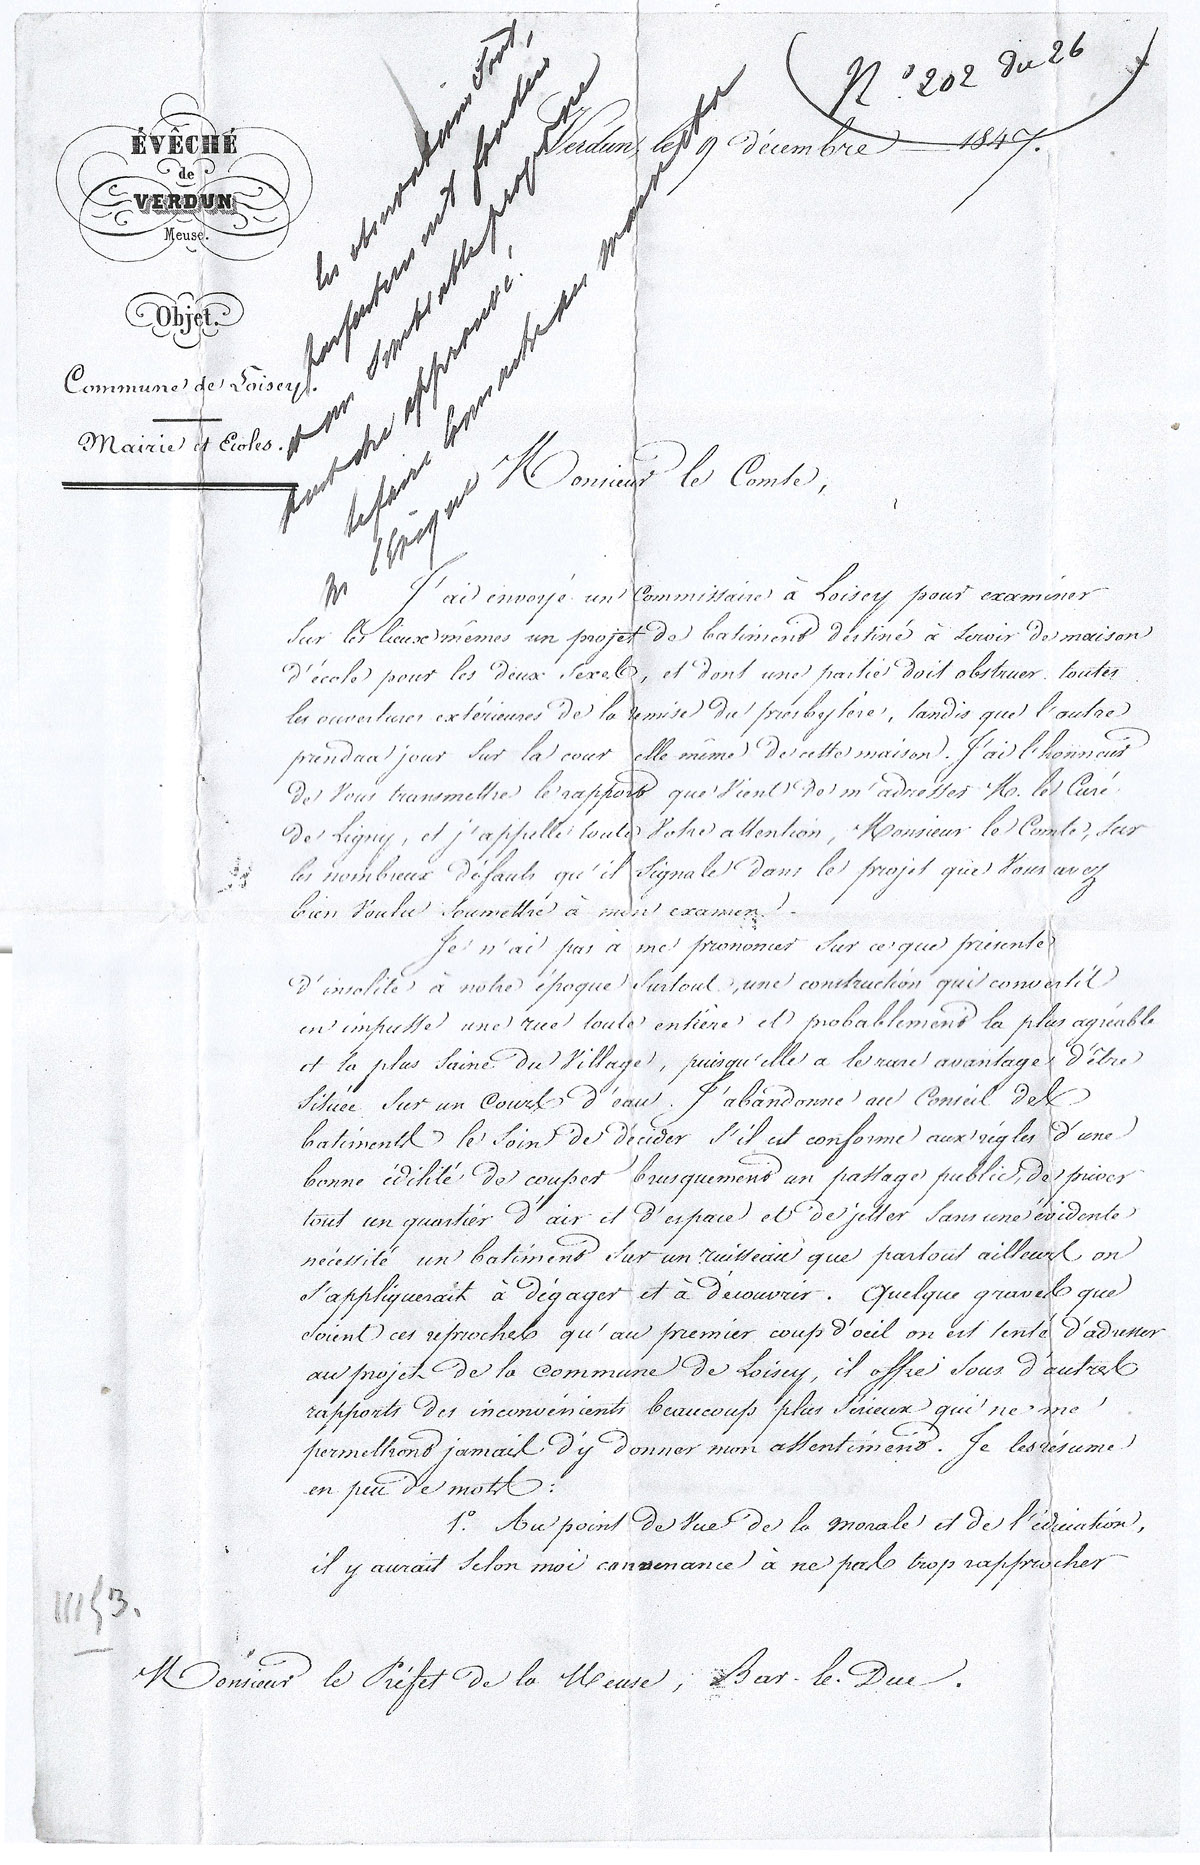 N.° 202 du 26
ÉVÊCHÉ
de
VERDUN
Meuse.
Verdun, le 9 décembre 1847.
Objet.
Commune de Loisey.
Mairie et Ecoles.
les observations sont
parfaitement fondées
et un semblable programme
peut être approuvé.
le faire connaitre
M. l'Evêque
Monsieur le Comte,
J'ai envoyé un Commissaire à Loisey pour examiner
sur les lieux mêmes un projet de batiment destiné à servir de maison
d'école pour les deux sexes, et dont une partie doit obstruer toutes
les ouvertures extérieures de la remise du presbytère, tandis que l'autre
prendra jour sur la cour elle même de cette maison. J'ai l'honneur
de vous transmettre le rapport que vient de m'adresser M. le Curé
de Ligny, et j'appelle toute votre attention, Monsieur le Comte, sur
les nombreux défauts qu'il signale dans le projet que vous avez
bien voulu soumettre à mon examen.
Je n'ai pas à me prononcer sur ce que présente
d'insolite à notre époque surtout, une construction qui convertit
en impasse une rue toute entière et probablement la plus agréable
et la plus saine du village, puisqu'elle a le rare avantage d'être
située sur un cours d'eau. J'abandonne au Conseil des
batiments le soin de décider s'il est conforme aux règles d'une
bonne édilité de couper brusquement un passage public, de priver
tout un quartier d'air et d'espace et de jetter sans une évidente
nécessité un batiment sur un ruisseau que partout ailleurs on
s'appliquerait à dégager et à découvrir. Quelque graves que
soient ces reproches qu'au premier coup d'oeil on est tenté d'adresser
au projet de la commune de Loisey, il offre sous d'autres
rapports des inconvénients beaucoup plus sérieux qui ne me
permettront jamais d'y donner mon assentiment. Je les résume
en peu de mots :
1.° Au point de vue de la morale et de l'éducation,
il y aurait selon moi convenance à ne pas trop rapprocher
Monsieur le Préfet de la Meuse, Bar-le-Duc.